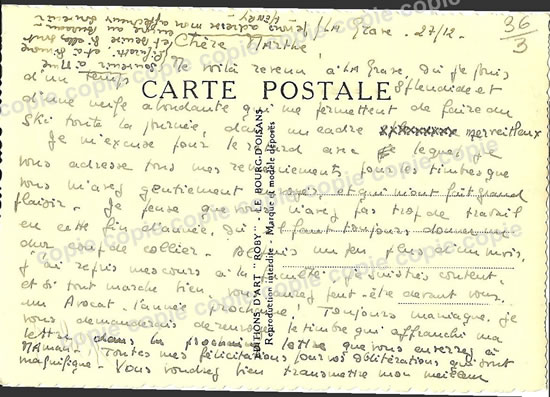 La Grave, 27/12.
36/3
Chère Marthe
Me voilà revenu à La Grave, où je jouis
d'un temps splendide et
CARTE POSTALE
d'une neige abondante qui me permettent de faire du
Ski toute la journée, dans un cadre merveilleux
Je m'excuse pour le retard avec lequel je
vous adresse tous mes remerciements pour les timbres que
vous m'avez gentiment envoyés, et qui m'ont fait grand
plaisir. Je pense que vous n'avez pas trop de travail
en cette fin d'année, où il faut toujours donner un
dur coup de collier. Depuis un peu plus d'un mois,
j'ai repris mes cours à la Faculté; j'en suis très content.
et si tout marche bien, vous aurez peut-être devant vous,
un Avocat l'année prochaine! Toujours maniaque, je
vous demanderais de remettre le timbre qui affranchi ma
lettre dans la prochaine lettre que vous enverrez à
Maman. Toutes mes félicitations pour vos oblitérations qui sont
magnifiques. Vous voudrez bien transmettre mon meilleur
souvenir à Mme
et à Simone
je vous adresse mon affectueux
HENRY
EDITIONS D'ART "ROBY" - LE BOURG-D'OISANS
Reproduction interdite - Marque et modèle déposés
copie copie copie copie